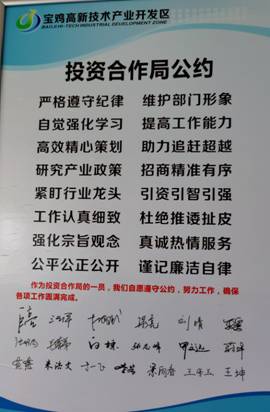 宝鸡高新技术产业开发区
BAOJI HI-TECH INDUSTRIAL DEVELOPMENT ZONE
投资合作局公约
严格遵守纪律 维护部门形象
自觉强化学习 提高工作能力
高效精心策划 助力追赶超越
研究产业政策 招商精准有序
紧盯行业龙头 引资引智引强
工作认真细致 杜绝推诿扯皮
强化宗旨观念 真诚热情服务
公平公正公开 谨记廉洁自律
作为投资合作局的一员，我们自愿遵守公约，努力工作，确保
各项工作圆满完成。